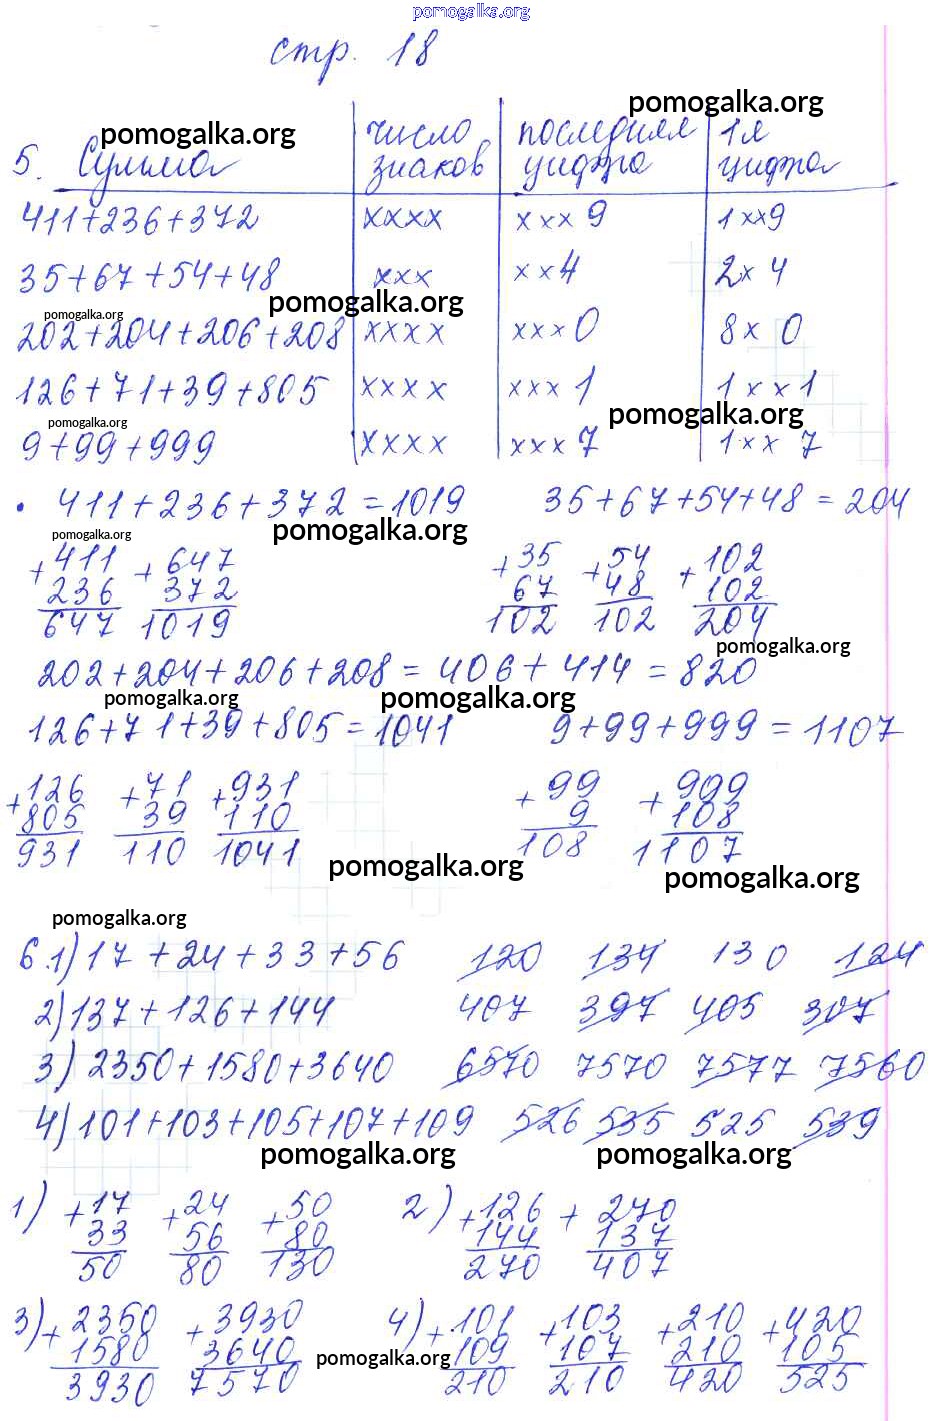 pomogalka.org
стр. 18
pomogalka.org
pomogalka.org
5. Сумма | число знаков | последняя цифра | 1я цифра
411+236+372 | xxxx | xxx9 | 1xx9
35+67+54+48 | xxx | xx4 | 2x4
pomogalka.org
pomogalka.org
202+204+206+208 | xxxx | xxx0 | 8x0
126+71+39+805 | xxxx | xxx1 | 1xx1
pomogalka.org
pomogalka.org
9+99+999 | xxxx | xxx7 | 1xx7
• 411+236+372=1019 35+67+54+48=204
pomogalka.org
pomogalka.org
+411 +647 +35 +54 +102
236 372 67 48 102
647 1019 102 102 204
pomogalka.org
202+204+206+208=406+414=820
pomogalka.org
pomogalka.org
126+71+39+805=1041 9+99+999=1107
+126 +71 +931 +99 +999
805 39 110 9 108
931 110 1041 108 1107
pomogalka.org
pomogalka.org
pomogalka.org
6.1) 17+24+33+56 120 134 130 124
2) 137+126+144 407 397 405 307
3) 2350+1580+3640 6570 7570 7577 7560
4) 101+103+105+107+109 526 535 525 539
pomogalka.org
pomogalka.org
1) +17 +24 +50 2) +126 +270
33 56 80 144 137
50 80 130 270 407
3) +2350 +3930 4) +101 +103 +210 +420
1580 3640 109 107 210 105
pomogalka.org
3930 7570 210 210 420 525